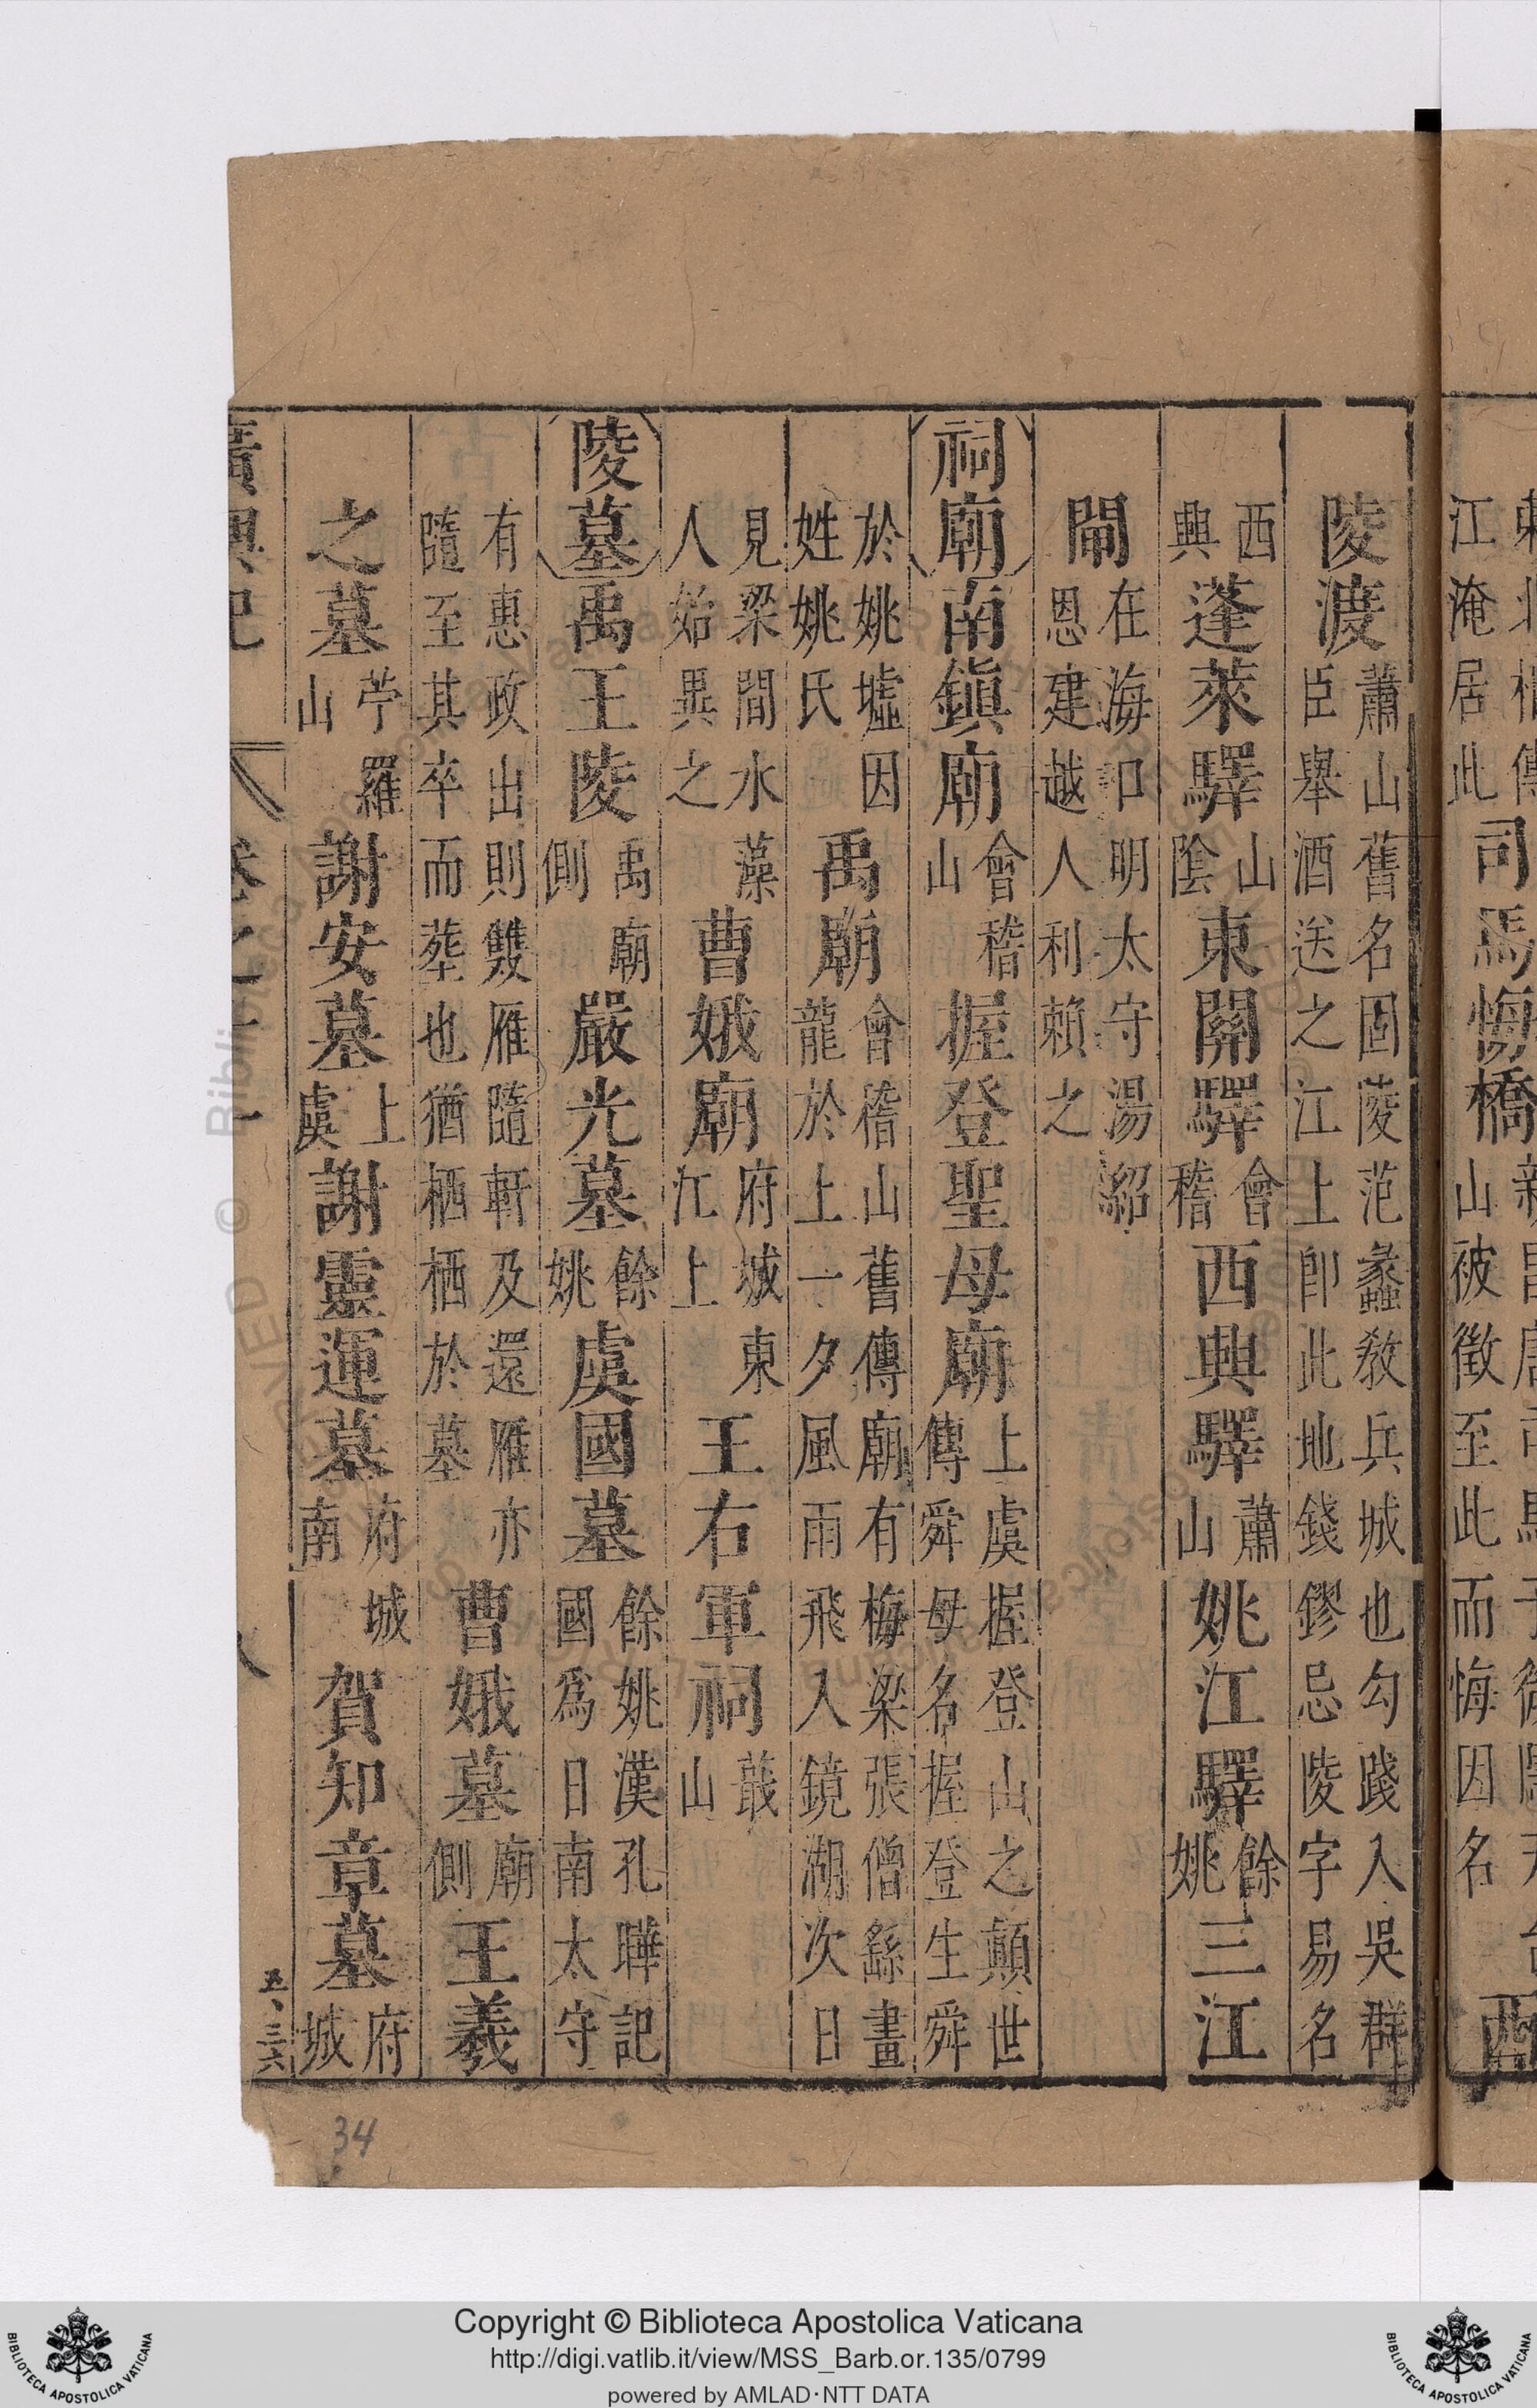 江淹居此司馬悔橋山被徵至此而悔因名西
陵渡蕭山舊名固陵范蠡教兵城也勾踐入吳群臣舉酒送之江上即此地錢鏐忌陵字易名
西興蓬萊驛山陰東關驛會稽西興驛蕭山姚江驛餘姚三江
閘在海口明太守湯紹恩建越人利賴之
祠廟南鎮廟會稽山握登聖母廟上虞握登山之顛世傳舜母名握登生舜
於姚墟因姓姚氏禹廟會稽山舊傳廟有梅梁張僧繇畫龍於上一夕風雨飛入鏡湖次日
見梁間水藻人始異之曹娥廟府城東江上王右軍祠蕺山
陵墓禹王陵禹廟側嚴光墓餘姚虞國墓餘姚漢孔曄記國爲日南太守
有惠政出則雙雁隨軒及還雁亦隨至其卒而葬也猶栖栖於墓曹娥墓廟側王羲
之墓苧羅山謝安墓上虞謝靈運墓府城南賀知章墓府城
廣輿記
五、三六
34
Copyright © Biblioteca Apostolica Vaticana
http://digi.vatlib.it/view/MSS_Barb.or.135/0799
powered by AMLAD·NTT DATA